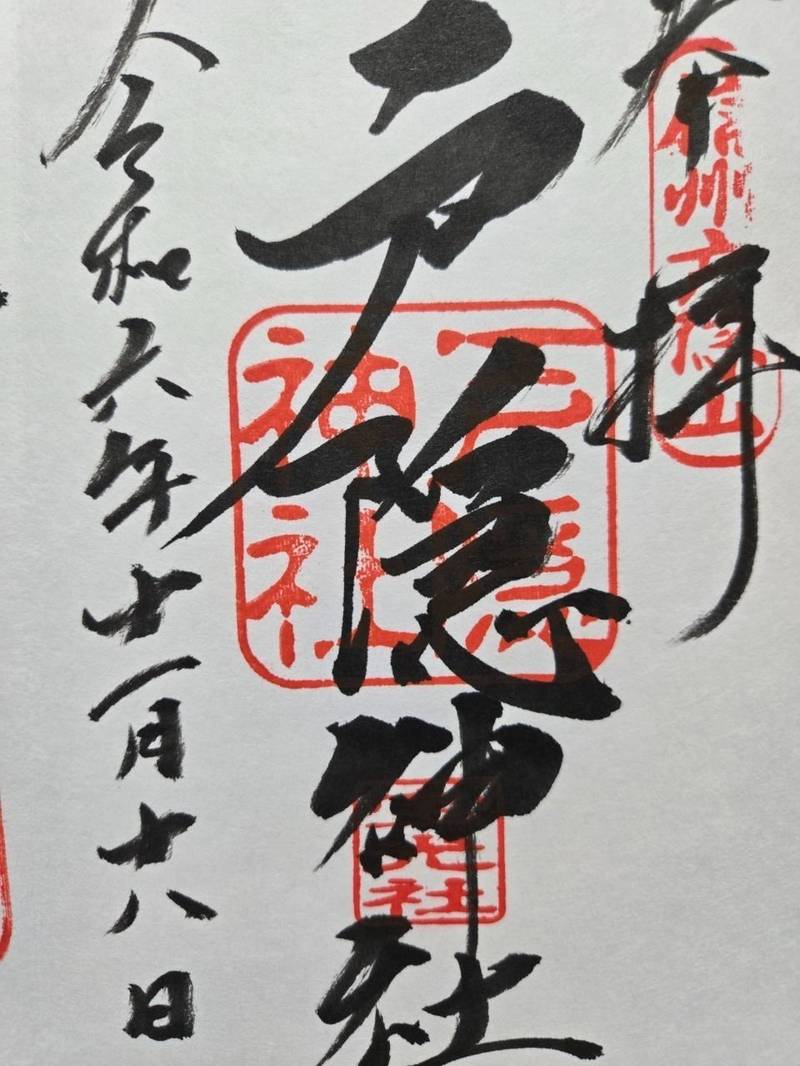 奉拝
信州戸隠山
戸隠神社
戸隠神社
宝光社
令和六年十一月十八日